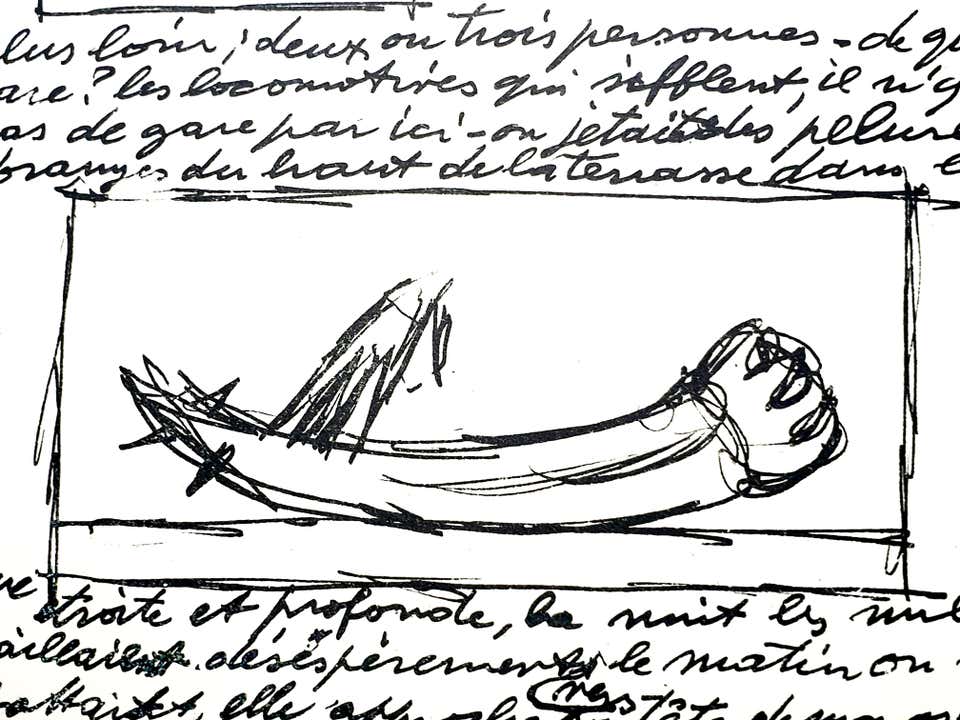 lus loin ; deux ou trois personnes - de qu
are ? les locomotives qui sifflent, il n'y
as de gare par ici - on jetait des pelure
oranges du haut de la terrasse dans l
troite et profonde, la nuit les mul
aillaient désespérement, le matin on
vers
elle